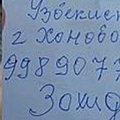 Узбекис
г Ханобо
9989077
Зохид